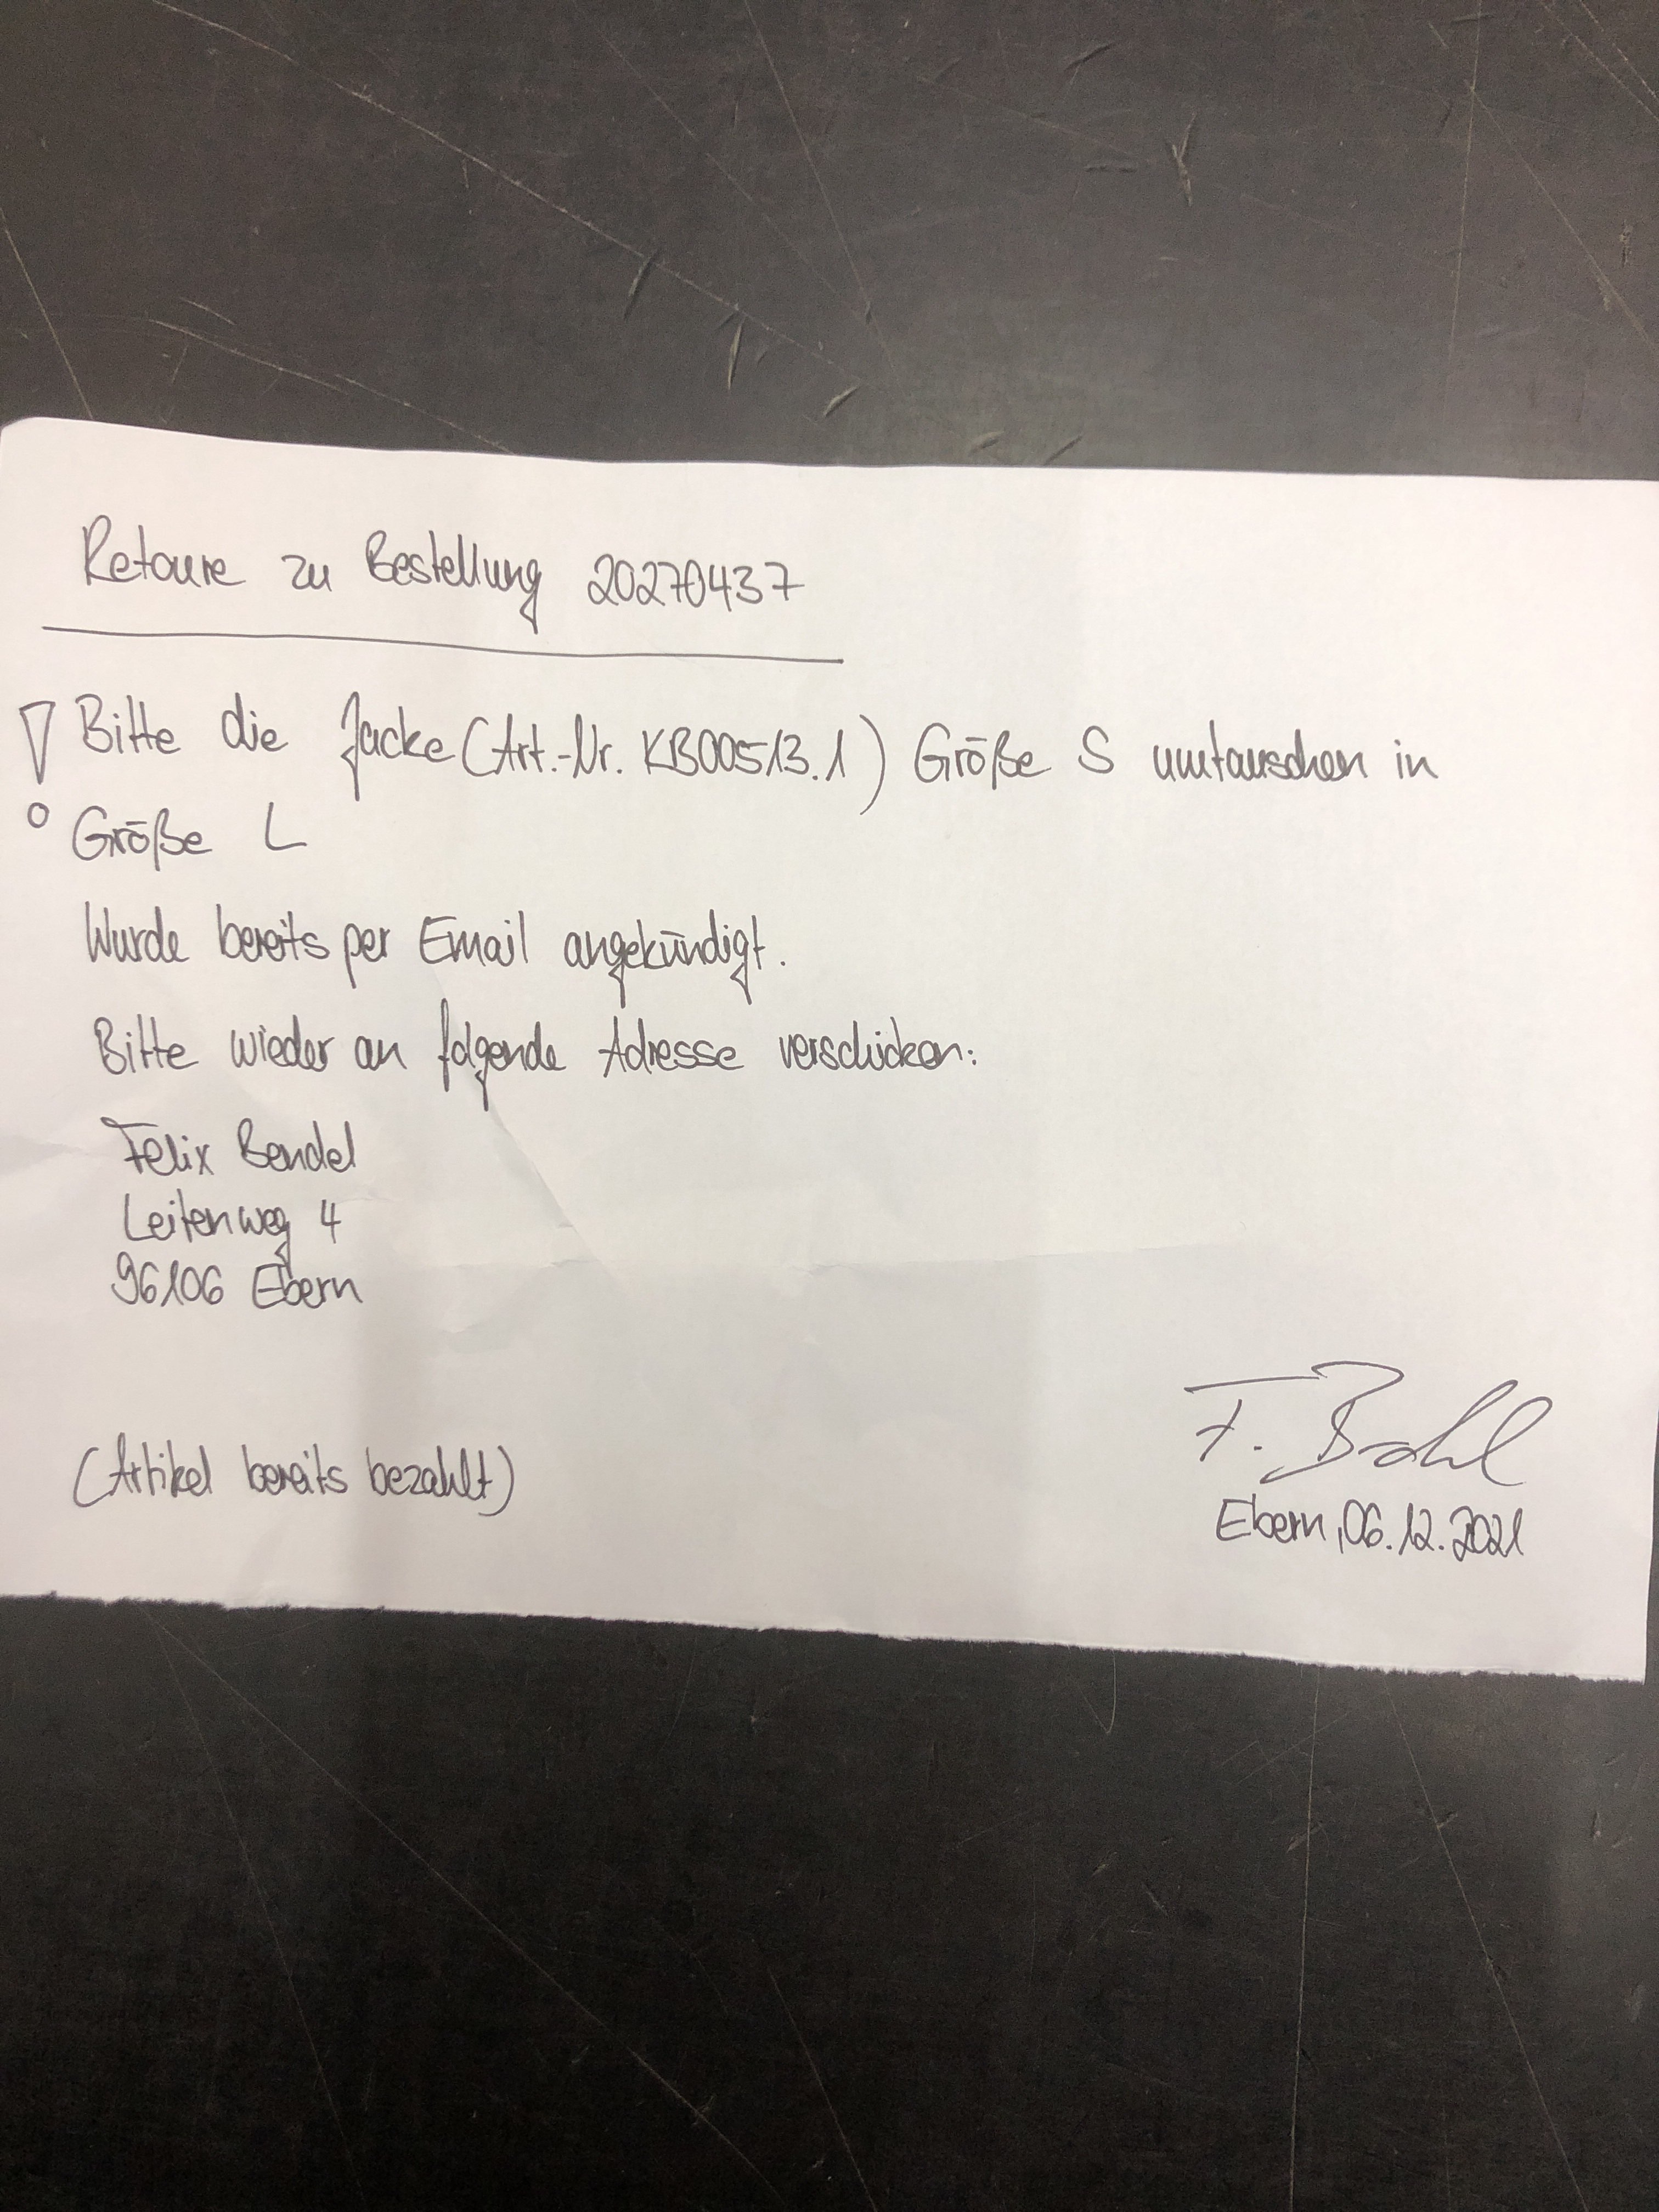 Retoure zu Bestellung 20270437
! Bitte die Jacke (Art.-Nr. KB00513.1) Größe S umtauschen in
Größe L
Wurde bereits per Email angekündigt.
Bitte wieder an folgende Adresse verschicken:
Felix Bendel
Leitenweg 4
96106 Ebern
(Artikel bereits bezahlt)
F.
Ebern, 06.12.2021